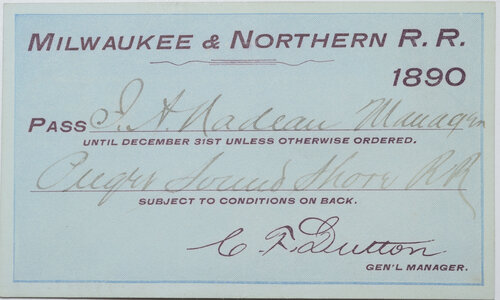 MILWAUKEE & NORTHERN R. R.
1890
PASS I. A. Nadeau Manager
UNTIL DECEMBER 31ST UNLESS OTHERWISE ORDERED.
Puget Sound Shore RR
SUBJECT TO CONDITIONS ON BACK.
C. F. Dutton
GEN'L MANAGER.